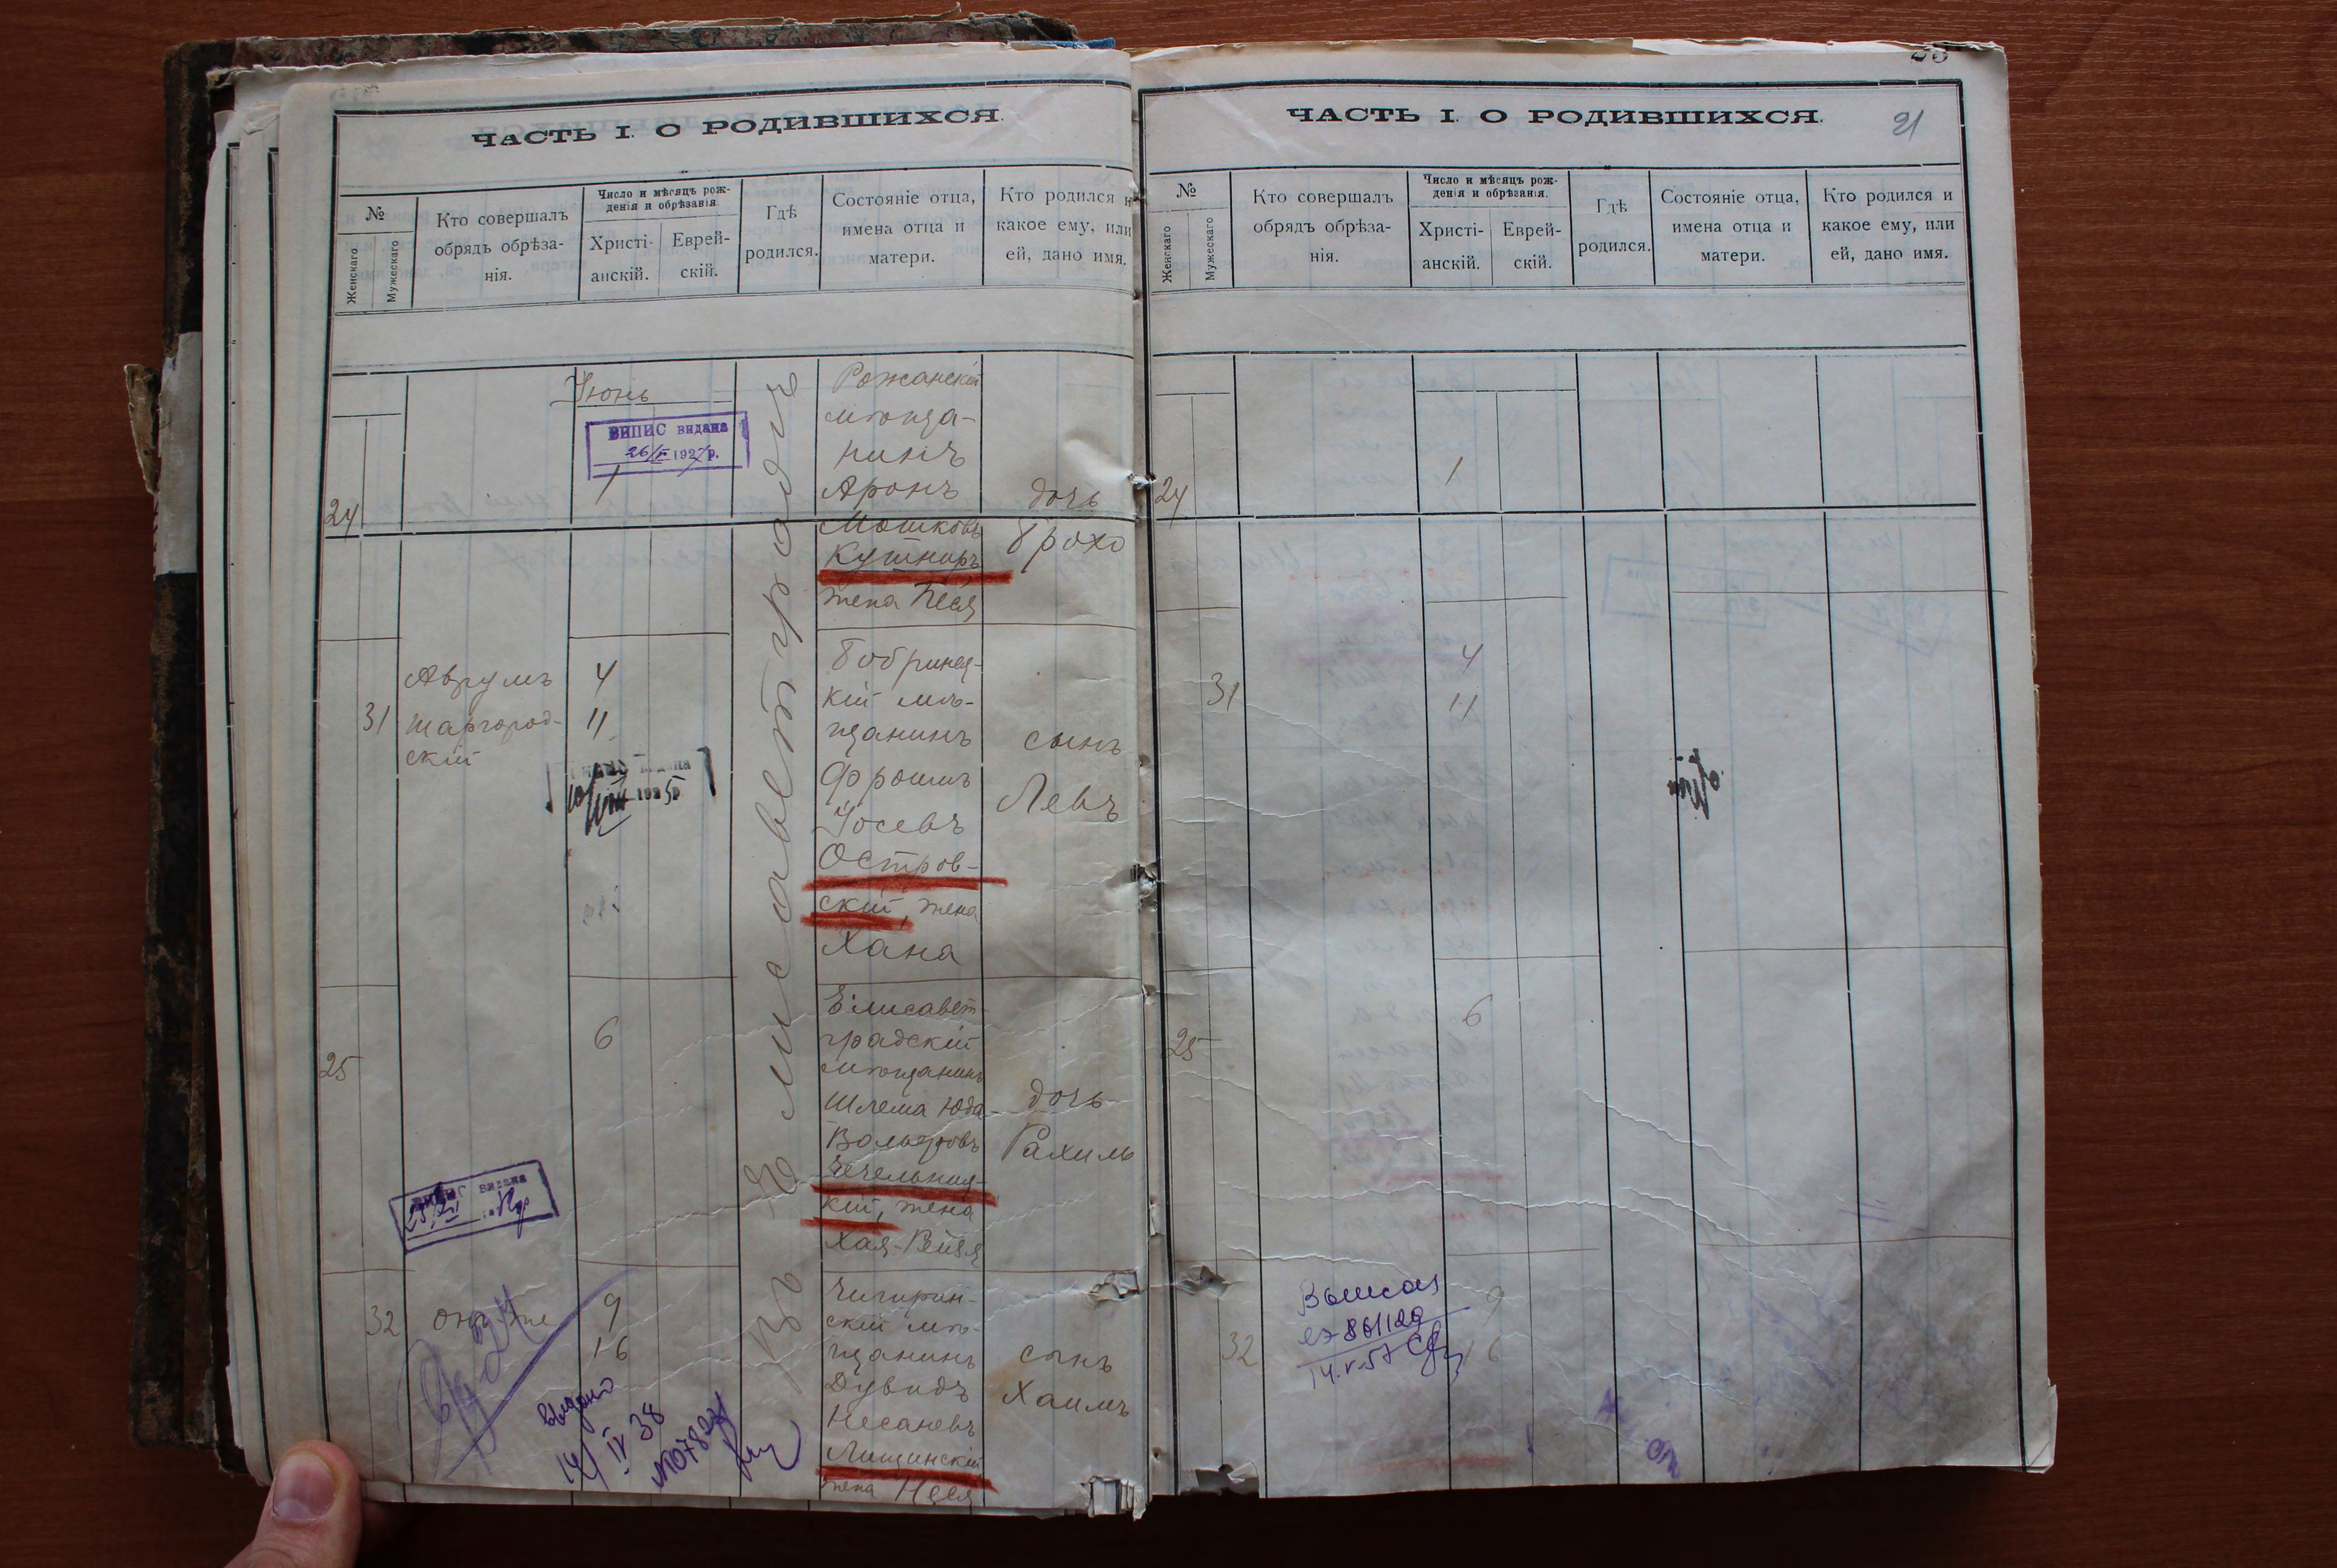 ЧАСТЬ I. О РОДИВШИХСЯ.
№
Женскаго
Мужескаго
Кто совершалъ
обрядъ обрѣза-
нія.
Число и мѣсяцъ рож-
денія и обрѣзанія.
Христі-
анскій.
Еврей-
скій.
Гдѣ
родился.
Состояніе отца,
имена отца и
матери.
Кто родился и
какое ему, или
ей, дано имя.
Въ Елисаветградѣ
Іюнь
ВИПИС видана
26/V 1927р.
24
1
Рожанскій
мѣща-
нинъ
Аронъ
Мошковъ
Кушниръ
жена Песя
дочь
Брохо
31
Аврумъ
Шаргород-
скій
4
11
видана
1925р
Бобринец-
кій мѣ-
щанинъ
Фроимъ
Іосевъ
Остров-
скій, жена
Хана
сынъ
Левъ
25
6
Елисавет-
градскій
мѣщанинъ
Шлема Юда
Вольфовъ
Чечельниц-
кій, жена
Хая-Рейзя
дочь
Рахиль
ВИПИС видана
32
Онъ же
9
16
Чигирин-
скій мѣ-
щанинъ
Дувидъ
Несаневъ
Лищинскій
жена Неся
сынъ
Хаимъ
выдано
14/IV 38
ЧАСТЬ I. О РОДИВШИХСЯ.
21
№
Женскаго
Мужескаго
Кто совершалъ
обрядъ обрѣза-
нія.
Число и мѣсяцъ рож-
денія и обрѣзанія.
Христі-
анскій.
Еврей-
скій.
Гдѣ
родился.
Состояніе отца,
имена отца и
матери.
Кто родился и
какое ему, или
ей, дано имя.
24
1
31
4
11
25
6
32
9
16
861120
14.V-57